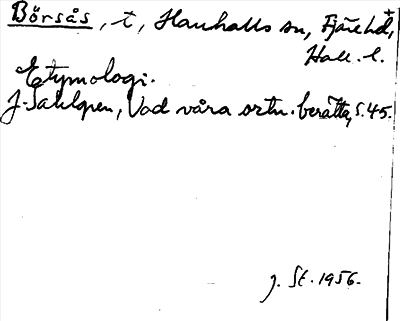 Börsås, t, Hanhalls sn, Fjäre hd,
Hall. l.
Etymologi.
J. Sahlgren, Vad våra ortn. berätta, s. 45.
J. St. 1956.